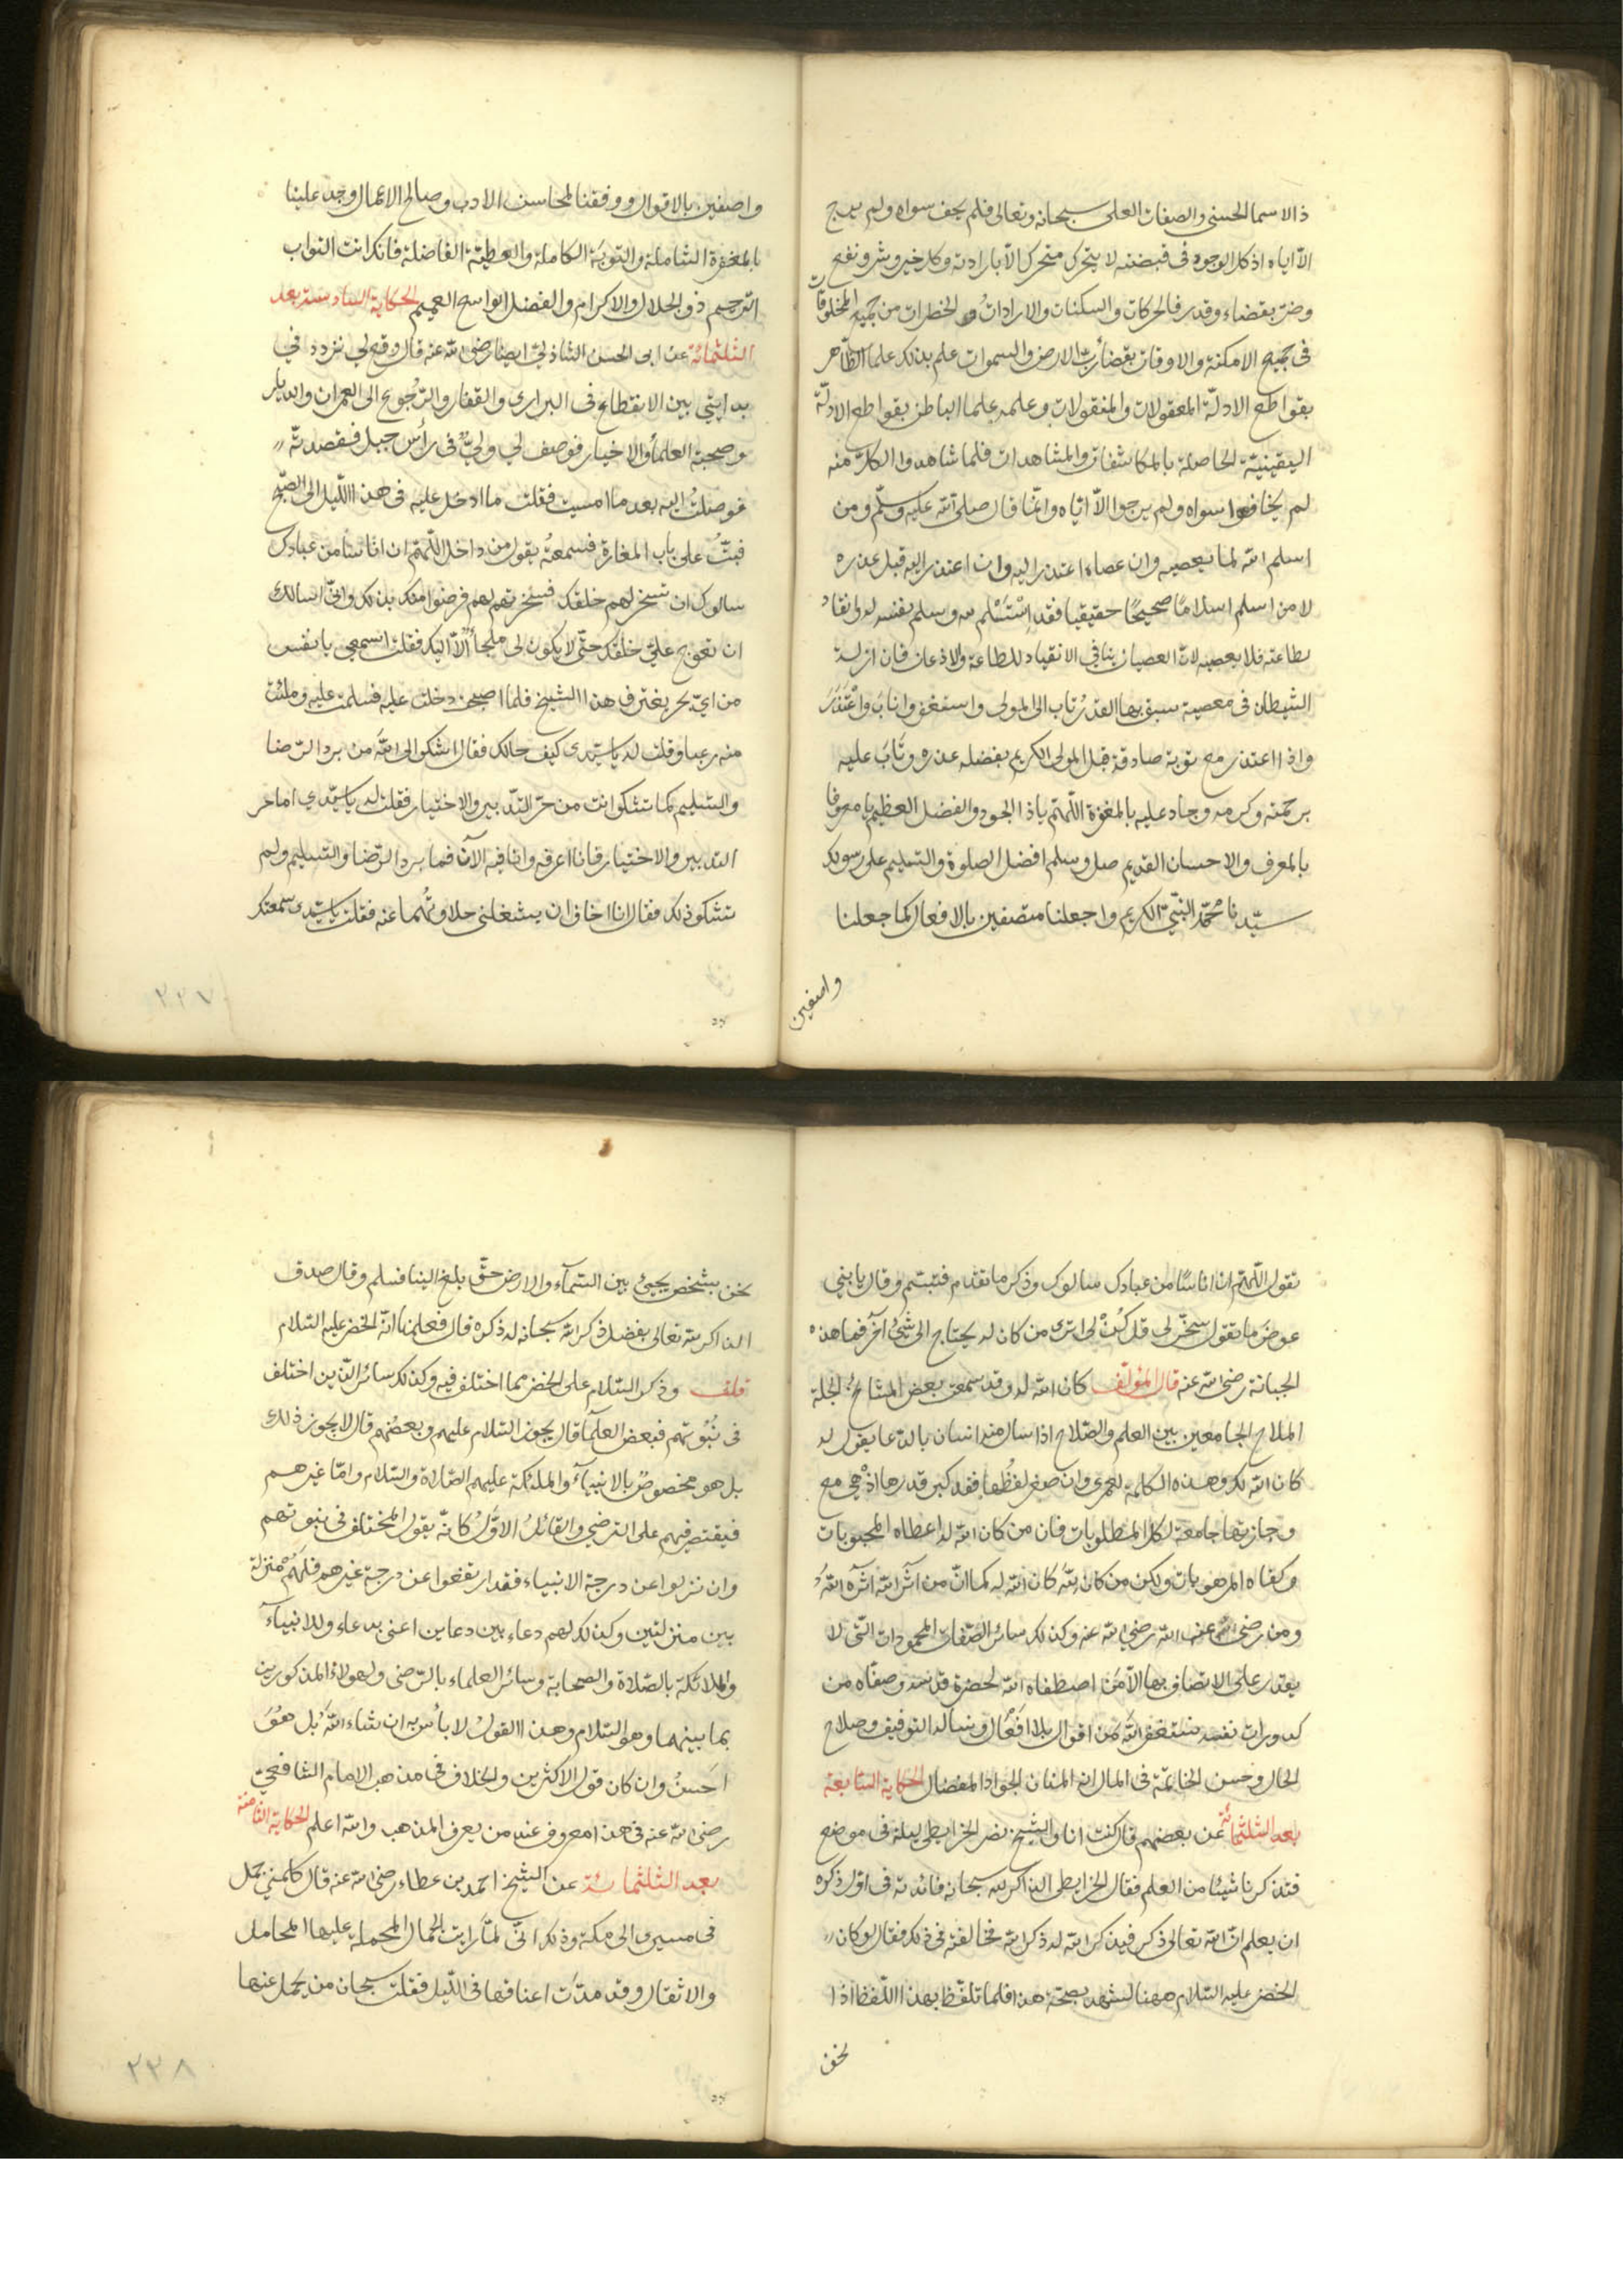 ذالاسما الحسنى والصفات العلى سبحانه وتعالى فلم يخف سواه ولم يرج
الّا اياه اذ كل الوجود فى قبضته لا يتحرك متحرك الا بارادته وكل خير وشر ونفع
وضرّ بقضاء وقدر فالحركات والسكنات والارادات والخطرات من جميع المخلوقات
فى جميع الامكنة والاوقات بقضاء ربّ الارض والسموات علم بذلك علماء الظاهر
بقواطع الادلّة المعقولات والمنقولات وعلمه علماء الباطن بقواطع الادلّة
اليقينيّة الحاصلة بالمكاشفات والمشاهدات فلما شاهدوا الكلّ منه
لم يخافوا سواه ولم يرجوا الّا ايّاه وانّما قال صلى الله عليه وسلّم ومن
اسلم الله لما يعصيه وان عصاه اعتذر اليه وان اعتذر اليه قبل عذره
لا من اسلم اسلامًا صحيحًا حقيقيا فقد اسْتَسْلم له وسلم نفسه له وانقاد
لطاعته فلا يعصيه لانّ العصيان ينافى الانقياد للطاعة والاذعان فان ازله
الشيطان فى معصية سبق بها القدرُ تاب الى المولى واستغفر واناب واعْتَذَرَ
واذا اعتذر مع توبة صادقة قبل المولى الكريم بفضله عذره وتَابَ عليه
برحمته وكرمه وجاد عليه بالمغفرة اللّهمّ ياذا الجود والفضل العظيم يا معروفا
بالمعرف والاحسان القديم صل وسلم افضل الصلوة والتسليم على رسولك
سيّدنا محمّد النبىّ الكريم واجعلنا متصفين بالافعال كما جعلنا
واصفين
واصفين بالاقوال ووفقنا لمحاسن الادب وصالح الاعمال وجد علينا
بالمغفرة الشاملة والتوبَة الكاملة والعطيّة الفاضلة فانك انت التواب
الرّحيم ذو الجلال والاكرام والفضل الواسع العميم الحكاية السادسة بعد
الثلثمائة عن ابى الحسن الشاذلىّ ايضا رضى الله عنه قال وقع لى تردد فى
بدايتى بين الانقطاع فى البرارى والقفار والرّجوع الى العمران والديار
وصحبة العلمأ والاخيار فوصف لى ولىّ فى رأس جبل فقصدته
فوصلتُ اليه بعد ما امسيت فقلت ما ادخل عليه فى هذا اللّيل الى الصّبح
فبتُّ على باب المغارة فسمعتهُ يقول من داخل اللّهمّ ان اناسا من عبادك
سالوك ان تسخر لهم خلقك فسخرتهم لهم فرضوا منك بذلك وانّى اسالك
ان تعوج علىّ خلقك حتّى لا يكون لى ملجأ الّا اليك فقلت اسمعى يا نفس
من اىّ بحر يغترف هذا الشيخ فلما اصبحت دخلت عليه فسلمت عليه وملئت
منه رعبا وقلت له يا سيّدى كيف حالك فقال اشكو الى الله من برد الرّضا
والتسليم كما تشكو انت من حرّ التدبير والاختيار فقلت له يا سيّدى اما حر
التدبير والاختيار فانا اعرفه وانا فيه الآن فما برد الرّضا والتسليم ولم
تشكو ذلك فقال انا اخاف ان يشغلنى حلاوتُهما عنه فقلت يا سيّدى سمعتك
٢٢٧
تقول اللّهمّ ان اناسًا من عبادك سالوك وذكر ما تقدّم فتبسّم وقال يا بنى
عوضَ ما تقول سخّر لى قل كُنْ لى اترى من كان له يحتاج الى شئ آخر فما هذه
الجبانة رضى الله عنه قال المؤلّف كان الله له وقد سمعت بعض المشائخ الجلة
الملاح الجامعين بين العلم والصّلاح اذا سال منه انسان بالدّعا يقول له
كان الله لك وهذه الكلمة لعمرى وان صغر لفظُها فقد كبر قدرها اذْ هى مع
وجازتها جامعة لكل المطلوبات فان من كان الله له اعطاه المحبوبات
وكفاه المرهوبات ولكن من كان للهَ كان الله له كما انّ من آثر الله آثره اللهُ
ومن رضى عن الله رضى الله عنه وكذلك سائر الصّفات المحمودات التّى لا
يقدر على الاتصاف بها الّا مَن اصطفاه الله لحضرة قدسه وصفّاه من
كدورات نفسه نستغفر اللهَ من اقوال بلا افْعَال ونساله التوفيق وصلاح
الحال وحسن الخاتمّة فى المال انه المنان الجواد المفضال الحكاية السّابعة
بعد الثلثمائة عن بعضهم قال كنت انا والشيخ نصر الخرايطى ليلة فى موضع
فتذكرنا شيئا من العلم فقال الخرايطى الذاكر لله سبحانه فائدته فى اوّل ذكره
ان يعلم انّ الله تعالى ذكره فبذكر الله له ذكر الله فخالفته فى ذلك فقال لو كان
الخضر عليه السّلام ههنا لشهد بصحّة هذا فلما تلفّظ بهذا اللّفظ اذا
نحن
نحن بشخص يجئ بين السّمآء والارض حتّى بلغ الينا فسلم وقال صدق
الذاكر لله تعالى بفضل ذكر الله سبحانه له ذكره قال فعلمنا انّه الخضر عليه السّلام
قلت وذكر السّلام على الخضر مما اختلف فيه وكذلك سائر الّذين اختلف
فى نُبُوّتهم فبعض العلمآء قال يجوز السّلام عليهم وبعضهم قال لا يجوز ذلك
بل هو مخصوصٌ بالانبيآء والملئكة عليهم الصّلاة والسّلام وامّا غيرهم
فيقتصر فيهم على الترضى والقائلُ الاوّلُ كانّه يقول المختلف فى نبوتهم
وان نزلوا عن درجة الانبياء فقد ارتفعوا عن درجة غيرهم فلهُمْ منزلة
بين منزلتين وكذلك لهم دعاء بين دعاين اعنى بدعاء وللانبيآء
والملائكة بالصّلاة والصحابة وسائر العلماء بالترّضى ولهولاء المذكورين
بما بينهما وهو السّلام وهذا القولُ لا بأس به ان شاء اللهُ بل هُوَ
احَسنُ وان كان قول الاكثرين والخلاف فى مذهب الامام الشافعىّ
رضى الله عنه فى هذا معروف عند من يعرف المذهب والله اعلم الحكاية الثامنة
بعد الثلثمائة عن الشيخ احمد بن عطاء رضى الله عنه قال كلمنى جمل
فى مسيرى الى مكة وذلك انّى لمّا رايت الجمال المحملة عليها المحامل
والاثقال وقد مدّت اعناقها فى اللّيل فقلت سبحان من يحمل عنها
٢٢٨